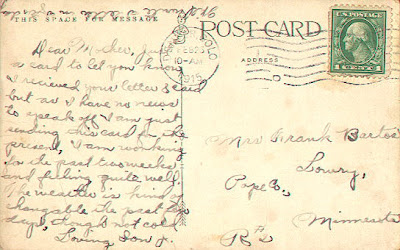 THIS SPACE FOR MESSAGE
POST CARD
ADDRESS
COLO.
FEB 22
10-AM
1915
Dear Mother, just
a card to let you know
I recieved your letter & card
but as I have no news
to speak off I am just
sending this card for the
present, I am working
in the past two weeks
and feeling quite well.
The weather is kind of
changable the past few
days, though not cold.
Loving Son J.
Mrs Frank Bartos
Lowry,
Pope Co.
Minnesota
R #2